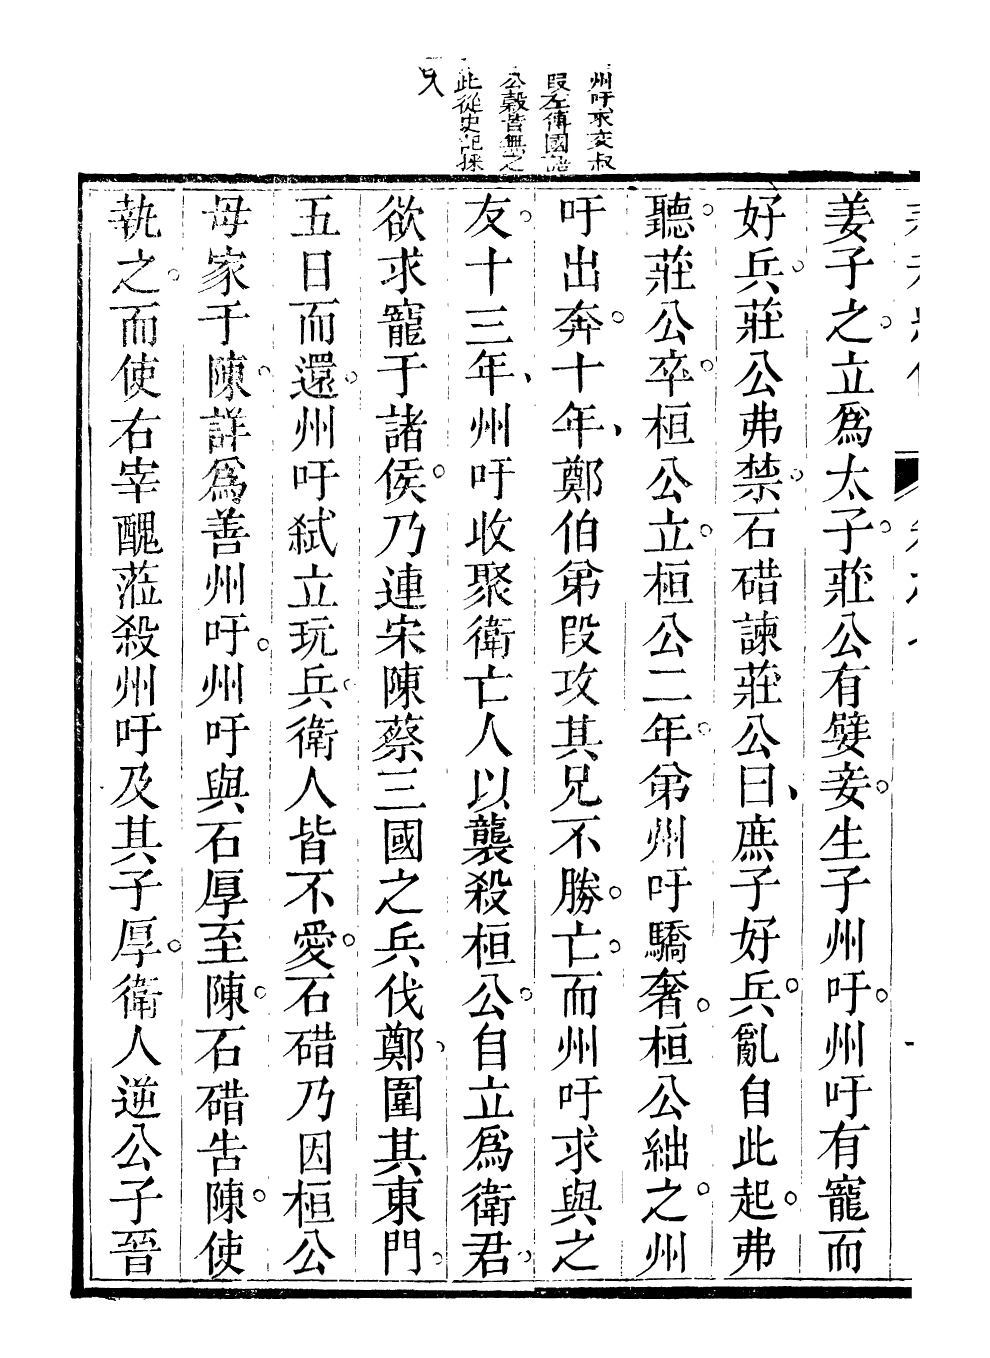 州吁求交叔
段左傳國語
公穀皆無之
此從史記採
入
姜子之。立爲太子。莊公有嬖妾。生子州吁。州吁有寵而
好兵。莊公弗禁。石碏諫莊公曰、庶子好兵。亂自此起。弗
聽。莊公卒。桓公立。桓公二年。弟州吁驕奢。桓公絀之。州
吁出奔。十年、鄭伯弟段攻其兄不勝。亡。而州吁求與之
友。十三年、州吁收聚衛亡人以襲殺桓公。自立爲衛君。
欲求寵于諸侯。乃連宋陳蔡三國之兵伐鄭、圍其東門。
五日而還。州吁弑立玩兵。衛人皆不愛。石碏乃因桓公
母家于陳。詳爲善州吁。州吁與石厚至陳。石碏告陳。使
執之。而使右宰醜蒞殺州吁及其子厚。衛人逆公子晉